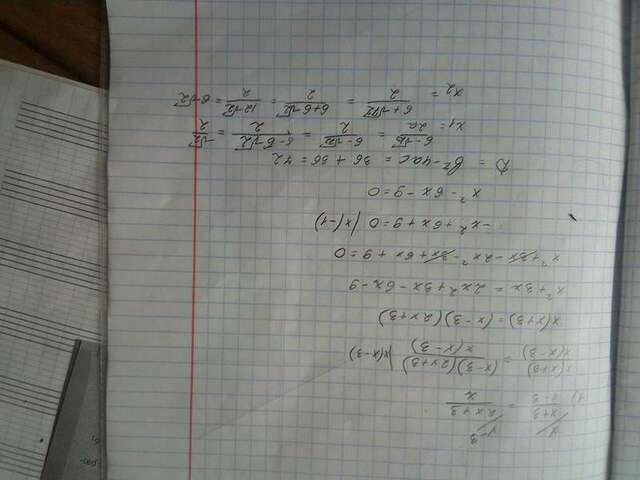 1) x+3/x-3 = 2x+3/x
x(x+3)/x(x-3) = (x-3)(2x+3)/x(x-3) |x(x-3)
x(x+3)=(x-3)(2x+3)
x²+3x = 2x²+3x-6x-9
x²+3x-2x²-3x+6x+9=0
-x²+6x+9=0 |x(-1)
x²-6x-9=0
D = b²-4ac = 36+36=72
x1 = 6-√D/2a = 6-√72/2 = 6-6√2/2 = -√2/2
x2 = 6+√72/2 = 6+6√2/2 = 12√2/2 = 6√2